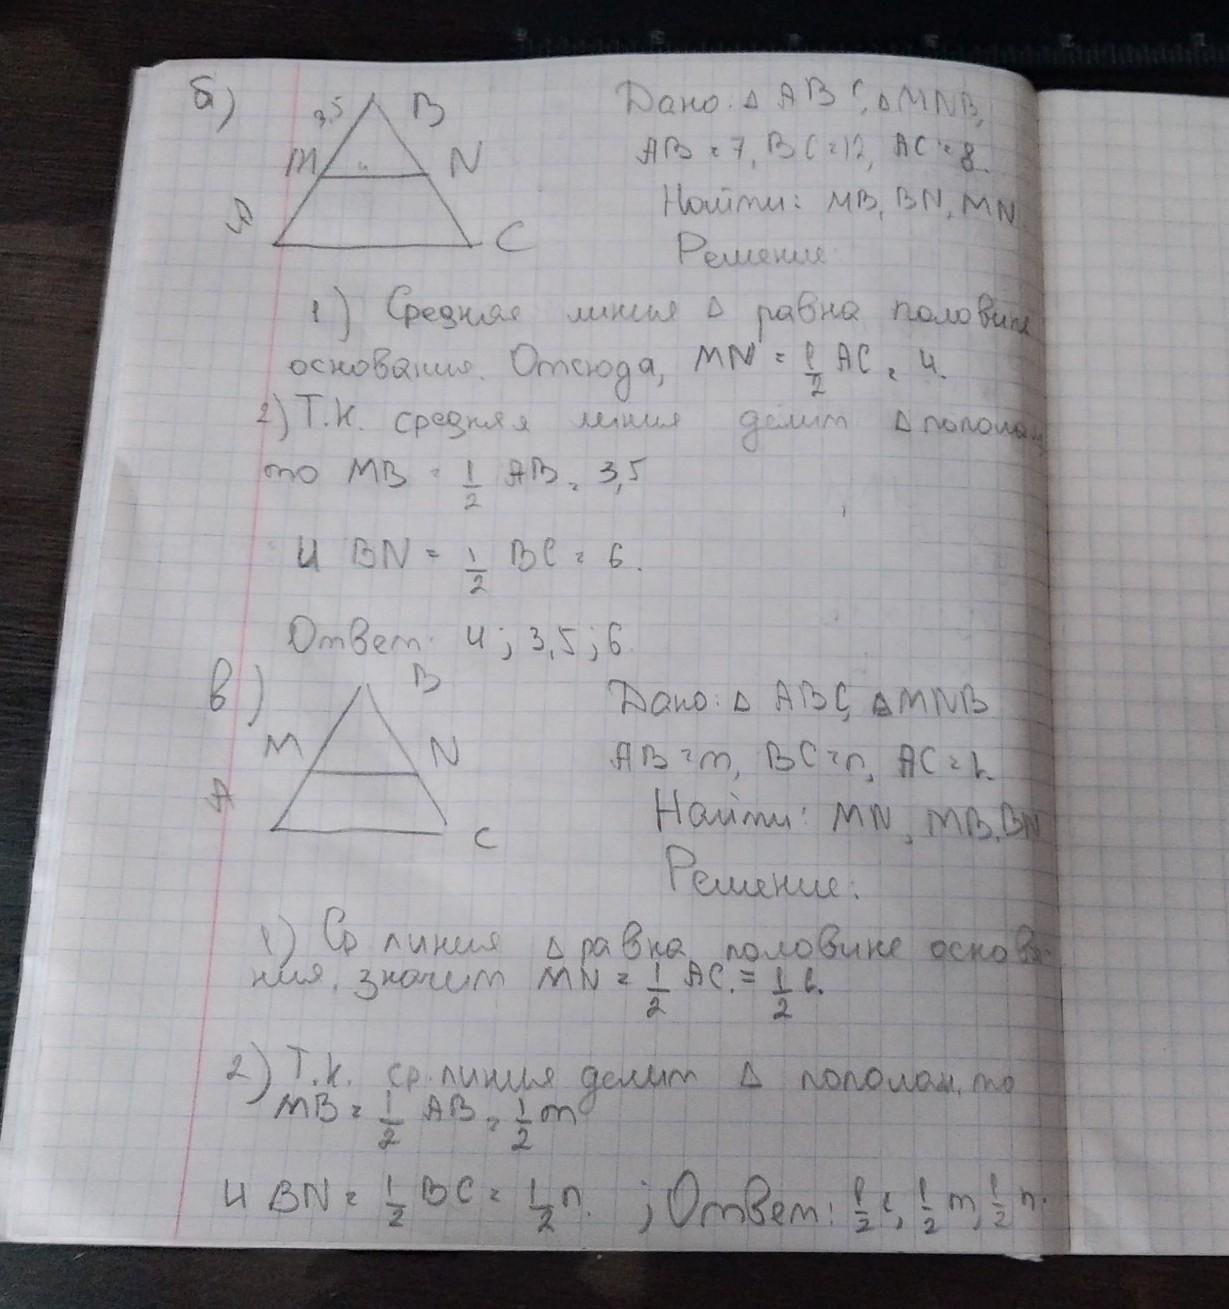 б)
3,5
B
M
N
A
C
Дано: △ ABC, △MNB,
AB = 7, BC = 12, AC = 8.
Найти: MB, BN, MN.
Решение:
1) Средняя линия △ равна половине
основания. Отсюда, MN = 1/2 AC = 4.
2) Т.к. средняя линия делит △ пополам,
то MB = 1/2 AB = 3,5
и BN = 1/2 BC = 6.
Ответ: 4; 3,5; 6.
в)
B
M
N
A
C
Дано: △ ABC, △MNB
AB = m, BC = n, AC = k.
Найти: MN, MB, BN
Решение:
1) Ср линия △ равна половине основа-
ния, значит MN = 1/2 AC = 1/2 k.
2) Т.к. ср. линия делит △ пополам, то
MB = 1/2 AB = 1/2 m
и BN = 1/2 BC = 1/2 n. ; Ответ: 1/2 k, 1/2 m, 1/2 n.